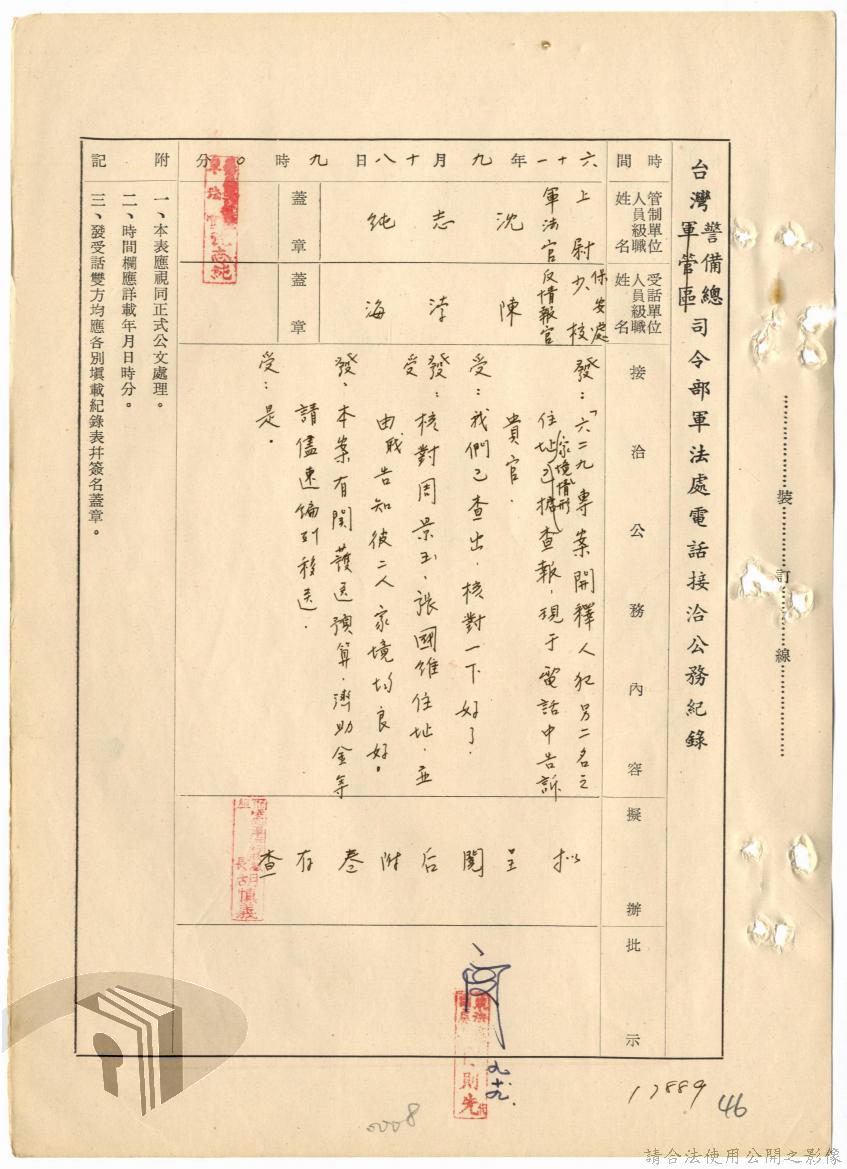 台灣警備總軍管區司令部軍法處電話接洽公務紀錄
時間
六十一年九月十八日九時0分
管制單位人員級職姓名
上尉軍法官
沈志純
蓋章
受話單位人員級職姓名
保安處
少校反情報官
陳海
蓋章
接洽公務內容
發：「六二九專案開釋人犯另二名之
住址家境情形已據查報，現于電話中告訴
貴官．
受：我們已查出，核對一下好了．
發：核對周景玉、張國維住址，並
受
由我告知彼二人家境均良好。
發、本案有關護送預算，濟助金等
請儘速編列移送．
受：是．
擬辦
擬呈閱后附卷存查
批示
九、十九．
附記
一、本表應視同正式公文處理。
二、時間欄應詳載年月日時分。
三、發受話雙方均應各別填載紀錄表幷簽名蓋章。
裝訂線
胡慎義
則先
17889
46
0008
請合法使用公開之影像